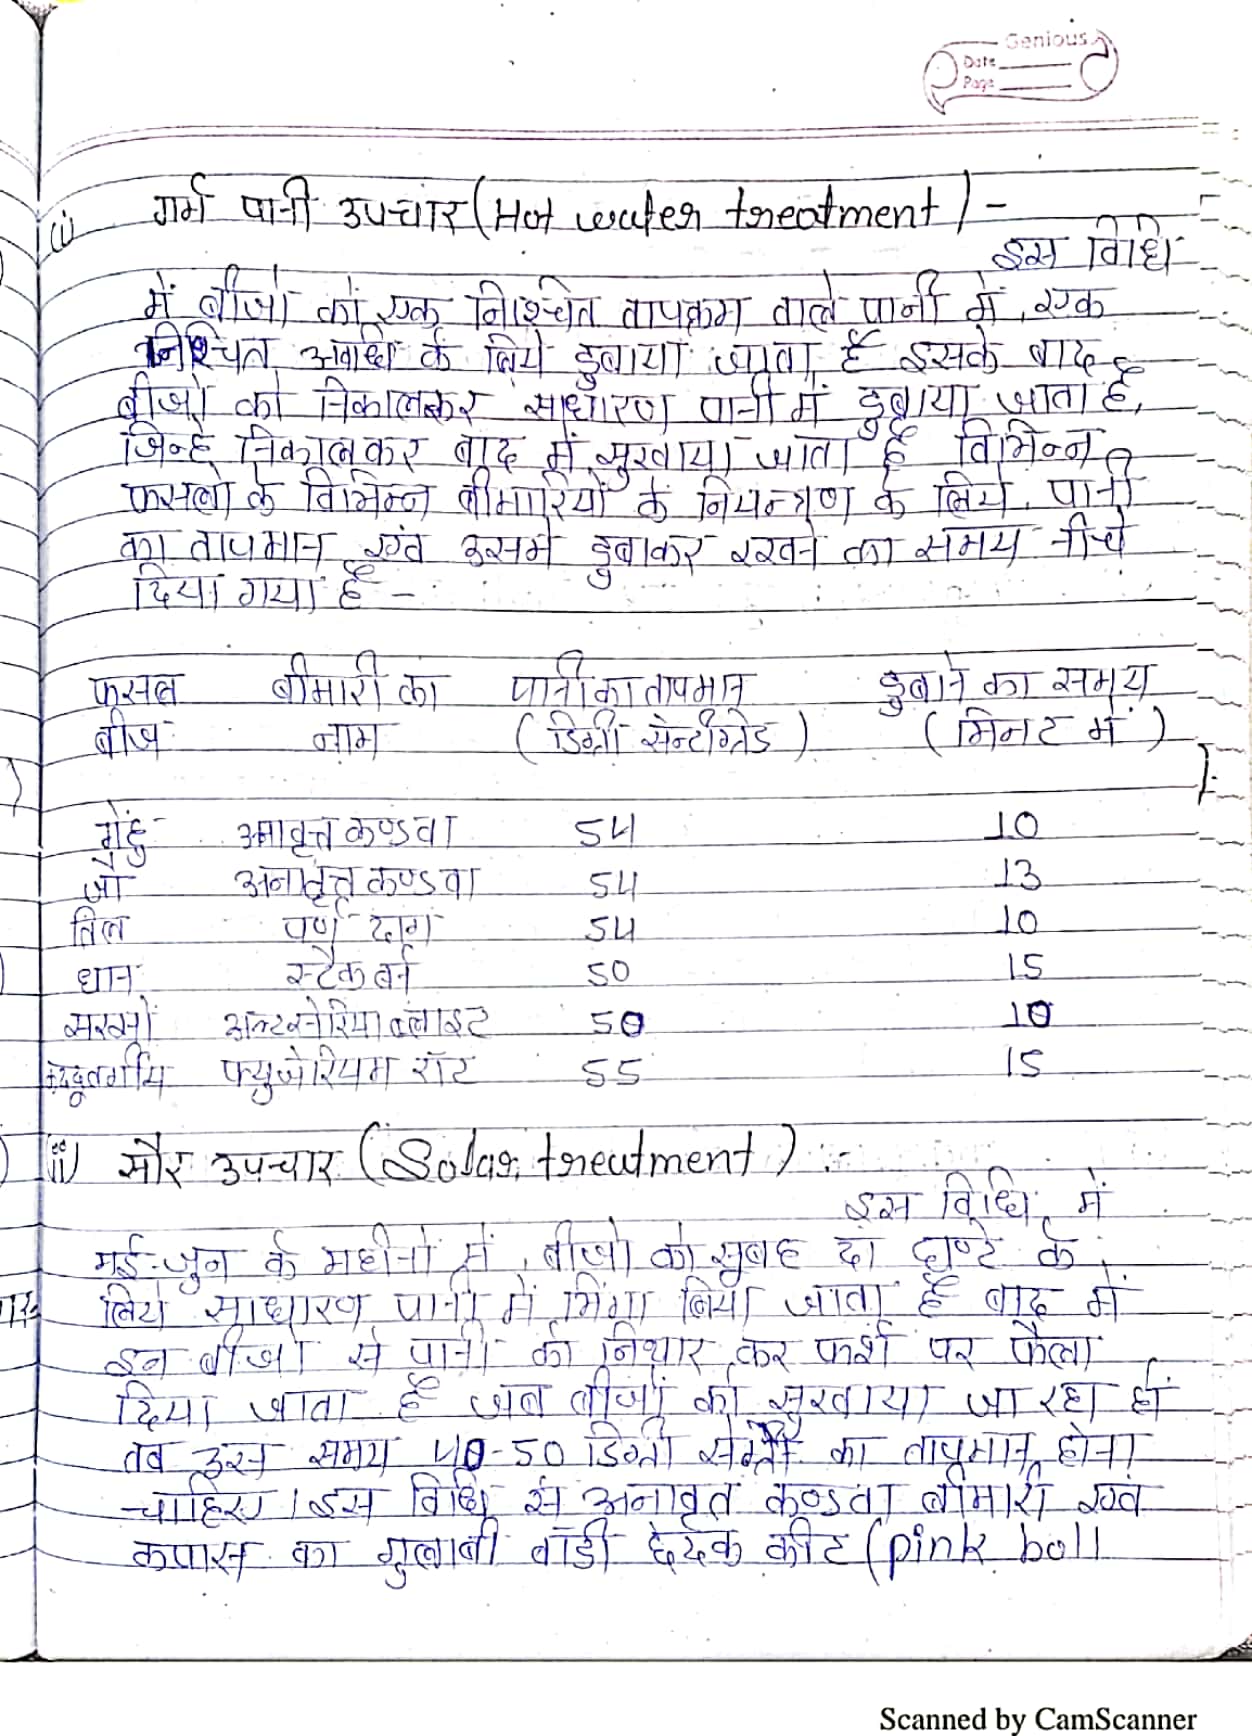 Genious
Date
Page
(i) गर्म पानी उपचार (Hot water treatment) -
इस विधि
में बीजों को एक निश्चित तापक्रम वाले पानी में, एक
निश्चित अवधि के लिये डुबाया जाता है इसके बाद
बीजों को निकालकर साधारण पानी में डुबाया जाता है,
जिन्हे निकालकर बाद में सुखाया जाता है विभिन्न
फसलो के विभिन्न बीमारियों के नियन्त्रण के लिये पानी
का तापमान एवं उसमे डुबाकर रखने का समय नीचे
दिया गया है -
फसल बीमारी का पानी का तापमान डुबाने का समय
बीज नाम (डिग्री सेन्टीग्रेड) (मिनट में)
गेंहु अनावृत्त कण्डवा 54 10
जौ अनावृत्त कण्डवा 54 13
तिल पर्ण दाग 54 10
धान स्टैक बर्न 50 15
सरसों अल्टरनेरिया ब्लाइट 50 10
कद्दूवर्गीय फ्युजेरियम रॉट 55 15
ii) सौर उपचार (Solar treatment) :-
इस विधि में
मई-जुन के महीनों में, बीजो को सुबह दो घण्टे के
लिये साधारण पानी में भिगा लिया जाता है बाद में
इन बीजों से पानी को निथार कर फर्श पर फैला
दिया जाता है जब बीजों को सुखाया जा रहा हो
तब उस समय 40-50 डिग्री का तापमान होना
चाहिए। इस विधि से अनावृत कण्डवा बीमारी एवं
कपास का गुलाबी बॉडी छेदक कीट (pink boll
Scanned by CamScanner